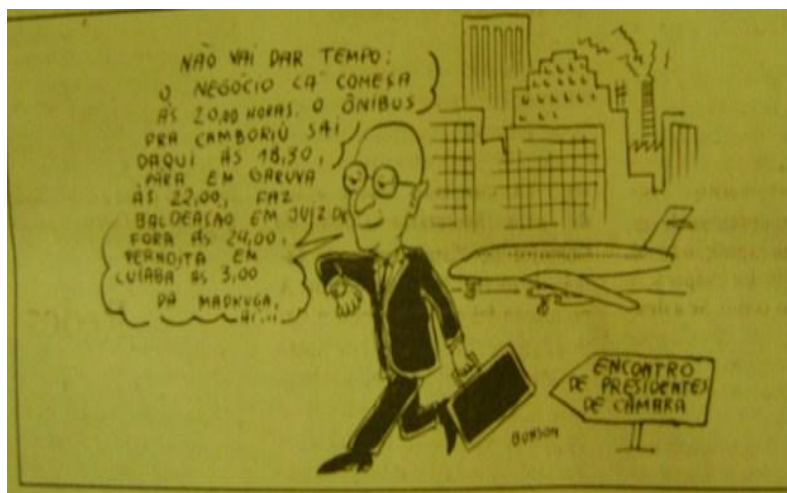 NÃO VAI DAR TEMPO:
O NEGÓCIO CÁ COMEÇA
ÀS 20,00 HORAS. O ÔNIBUS
PRA CAMBORIÚ SAI
DAQUI ÀS 18,30,
PÁRA EM GARUVA
ÀS 22,00, FAZ
BALDEAÇÃO EM JUIZ DE
FORA ÀS 24,00,
PERNOITA EM
CUIABÁ ÀS 3,00
DA MADRUGA,
AÍ...
ENCONTRO
DE PRESIDENTES
DE CÂMARA
BONSON